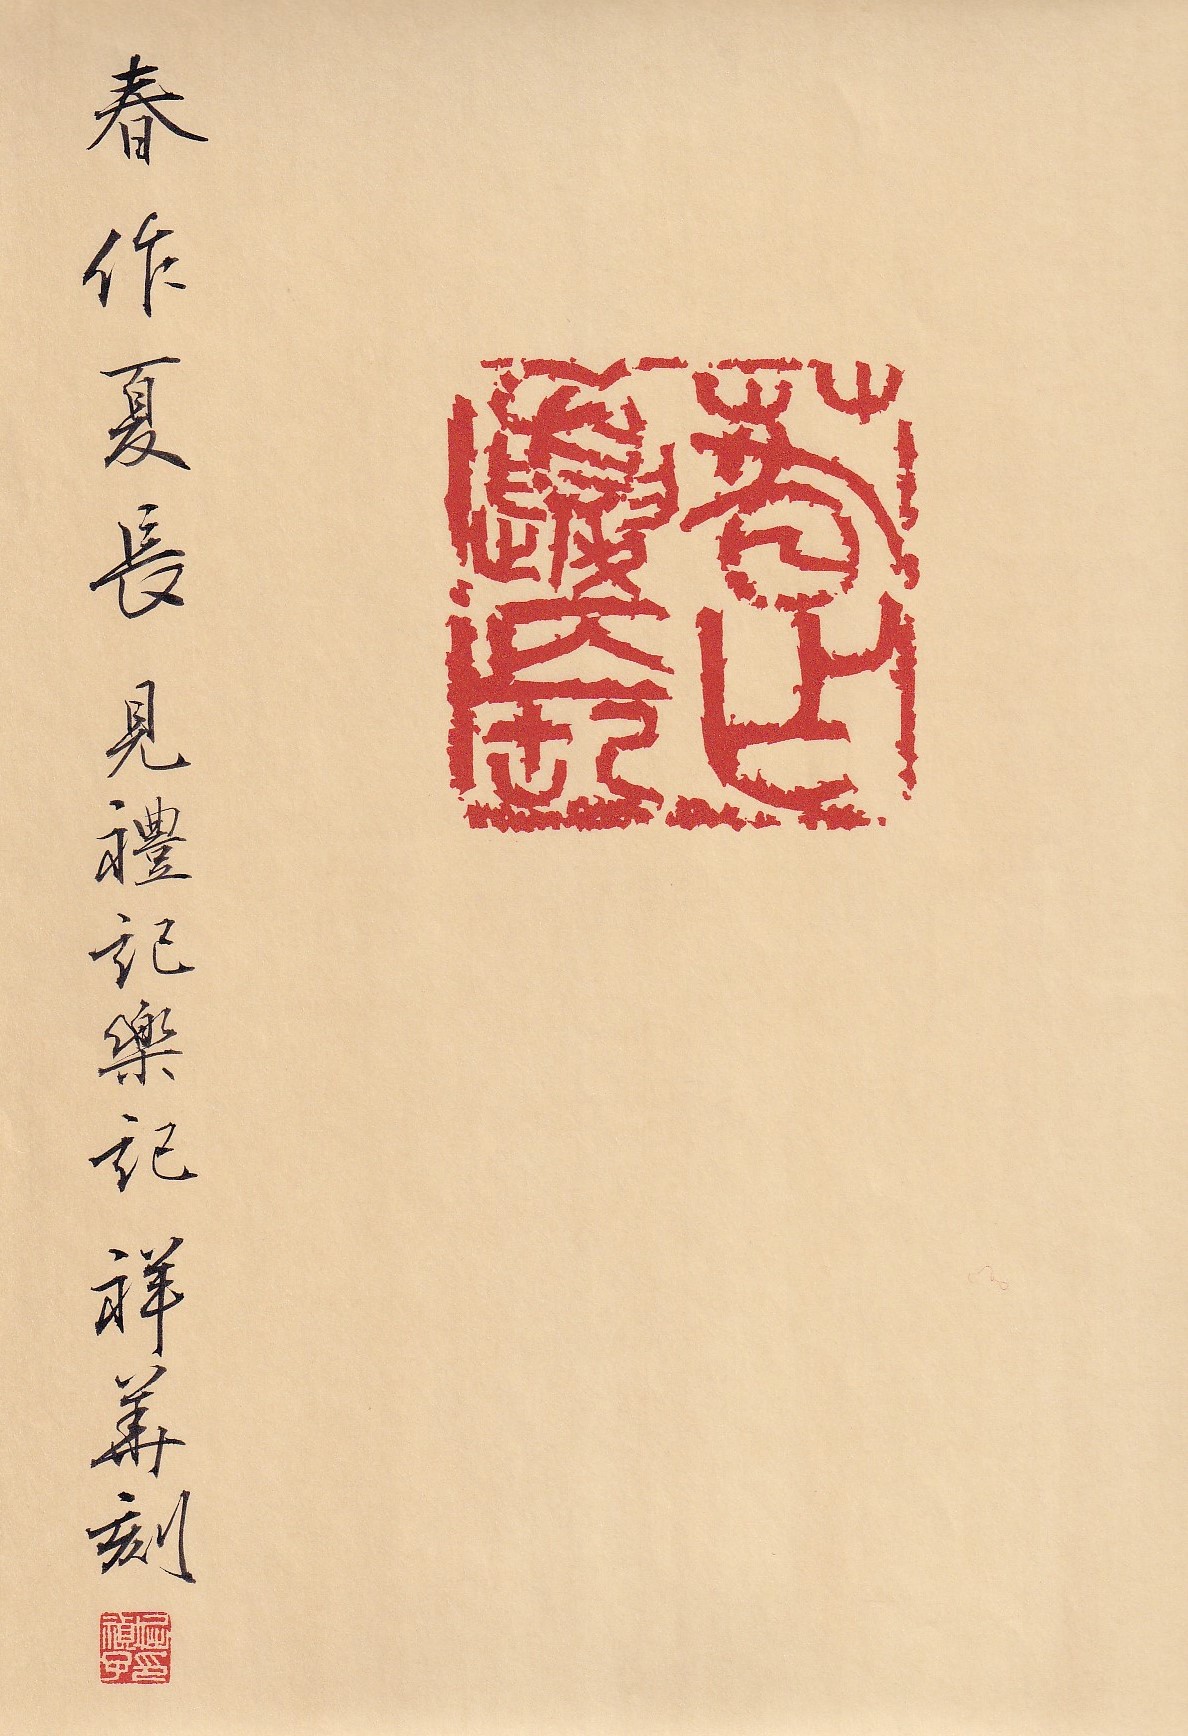 春作夏長
春作夏長 見禮記樂記 祥華刻